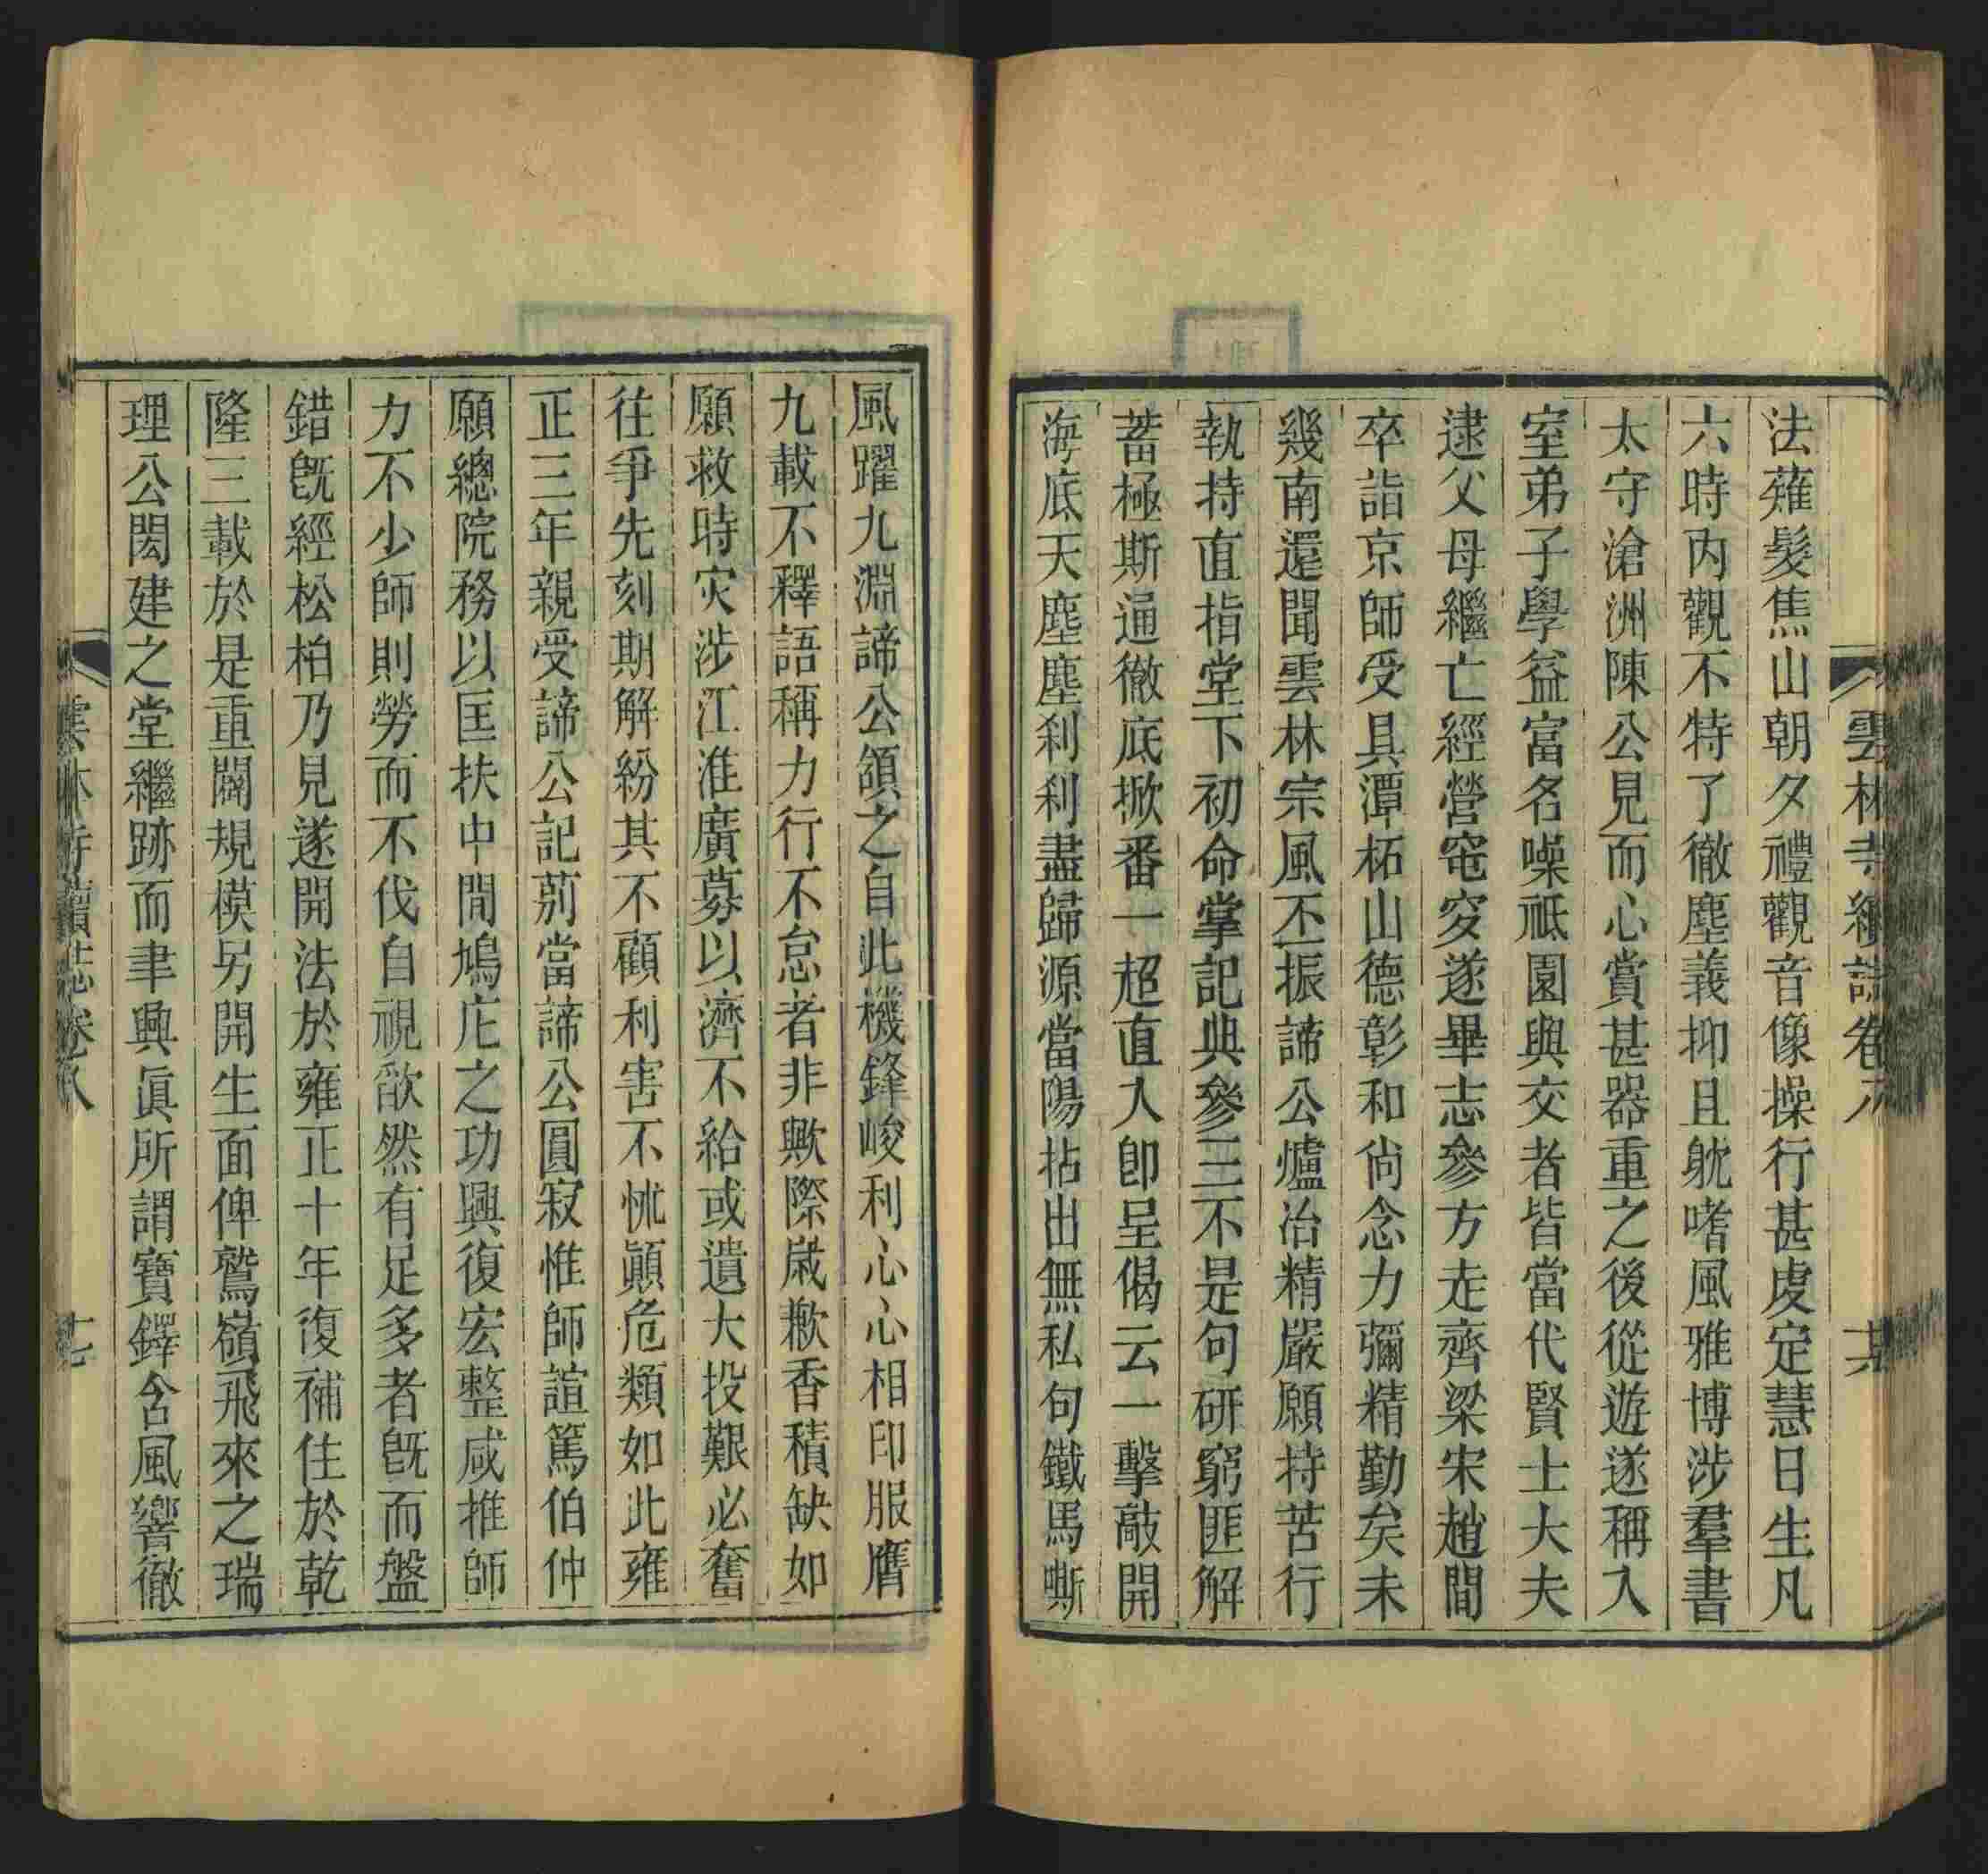 雲林寺續誌卷八
共
法薙髮焦山朝夕禮觀音像操行甚虔定慧日生凡
六時內觀不特了徹塵義抑且躭嗜風雅博涉羣書
太守滄洲陳公見而心賞甚器重之後從遊遂稱入
室弟子學益富名噪祗園與交者皆當代賢士大夫
逮父母繼亡經營窀穸遂畢志參方走齊梁宋趙間
卒詣京師受具潭柘山德彰和尙念力彌精勤矣未
幾南還聞雲林宗風丕振諦公爐冶精嚴願持苦行
執持直指堂下初命掌記典參三不是句研窮匪解
蓄極斯通徹底掀番一超直入卽呈偈云一擊敲開
海底天塵塵刹刹盡歸源當陽拈出無私句鐵馬嘶
風躍九淵諦公頷之自此機鋒峻利心心相印服膺
九載不釋語稱力行不怠者非歟際歲歉香積缺如
願救時灾涉江淮廣募以濟不給或遺大投艱必奮
往爭先刻期解紛其不顧利害不怵顚危類如此雍
正三年親受諦公記莂當諦公圓寂惟師誼篤伯仲
願總院務以匡扶中閒鳩庀之功興復宏整咸推師
力不少師則勞而不伐自視欿然有足多者旣而盤
錯旣經松柏乃見遂開法於雍正十年復補住於乾
隆三載於是重闢規模另開生面俾鷲嶺飛來之瑞
理公閎建之堂繼跡而聿興眞所謂寶鐸含風響徹
雲林寺續誌卷八
七